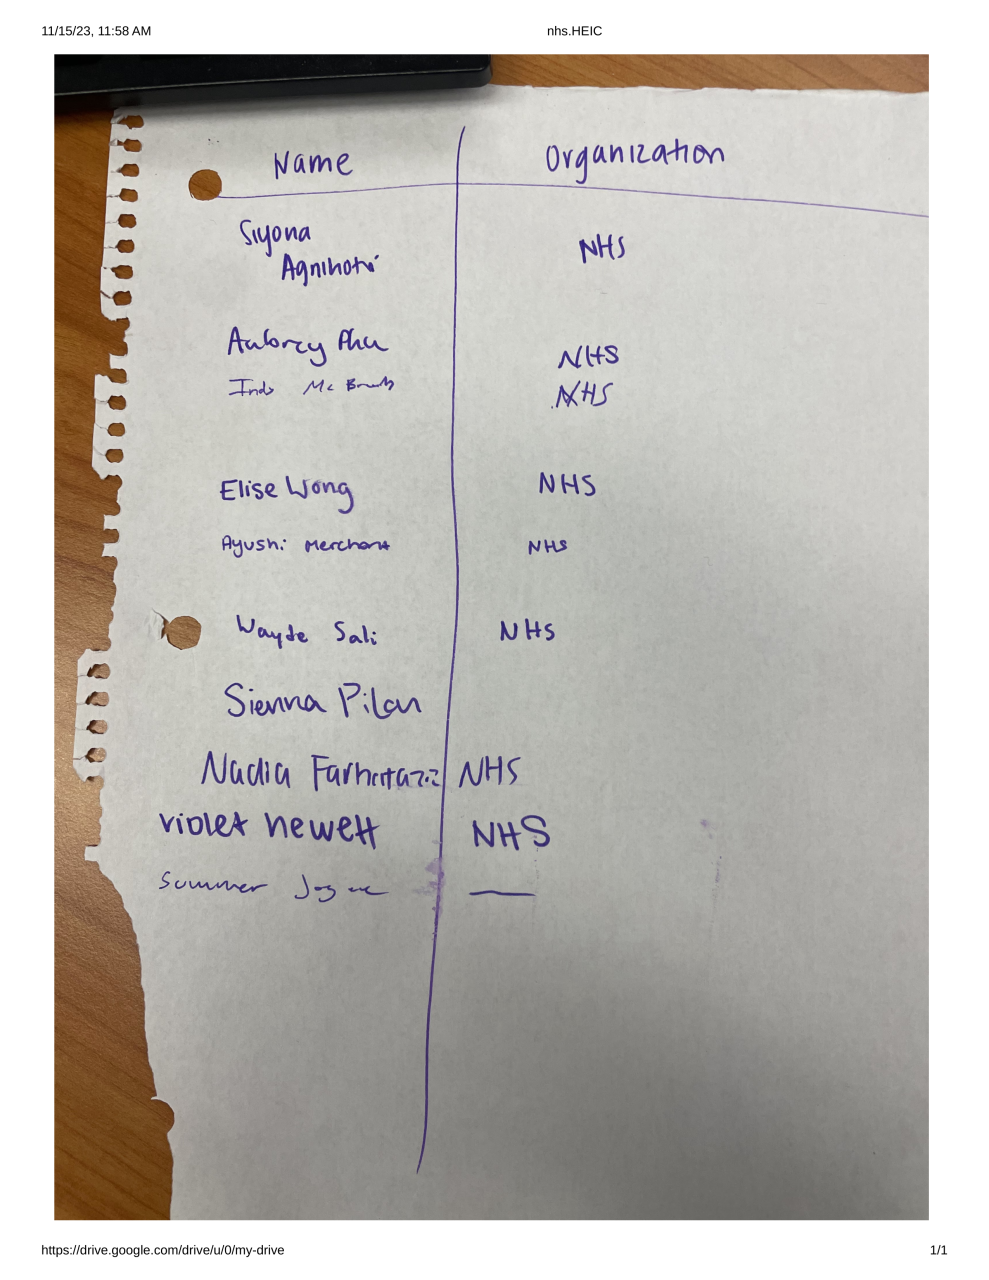 11/15/23, 11:58 AM nhs.HEIC
Name Organization
Siyona
Agnihotri NHS
Aubrey Phu NHS
Mc NHS
Elise Wong NHS
Ayushi Merchant NHS
Wayde Sali NHS
Sienna Pilon
Nadia Farhatazi NHS
violet newett NHS
Summer
https://drive.google.com/drive/u/0/my-drive 1/1